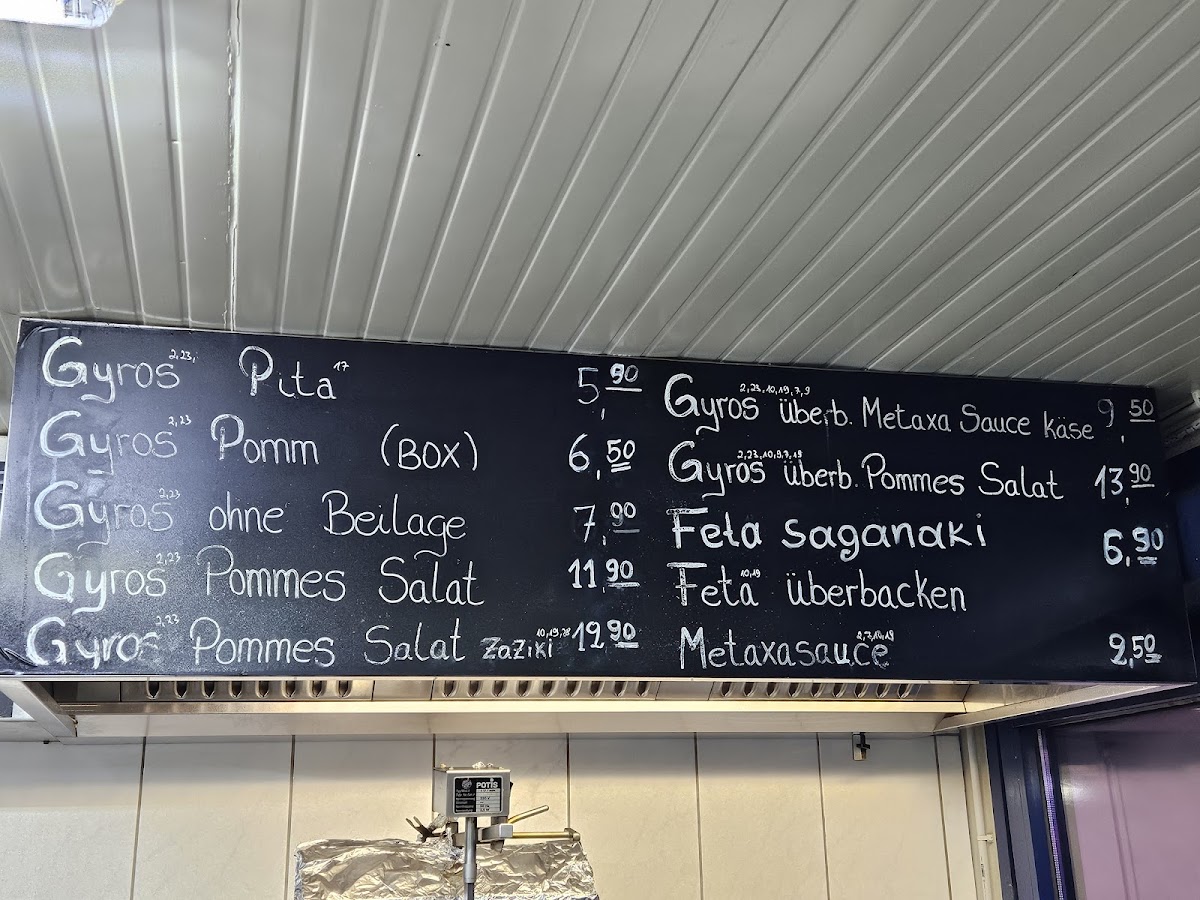 Gyros 2,23, Pita 17 5,90
Gyros 2,23 Pomm (BOX) 6,50
Gyros 2,23 ohne Beilage 7,90
Gyros 2,23 Pommes Salat 11,90
Gyros 2,23 Pommes Salat ZaZiki 12,90
Gyros 2,23,10,19,7,9 überb. Metaxa Sauce käse 9,50
Gyros 2,23,10,9,7,19 überb. Pommes Salat 13,90
Feta saganaki 6,90
Feta 10,19 überbacken
Metaxasauce 2,50
POTIS